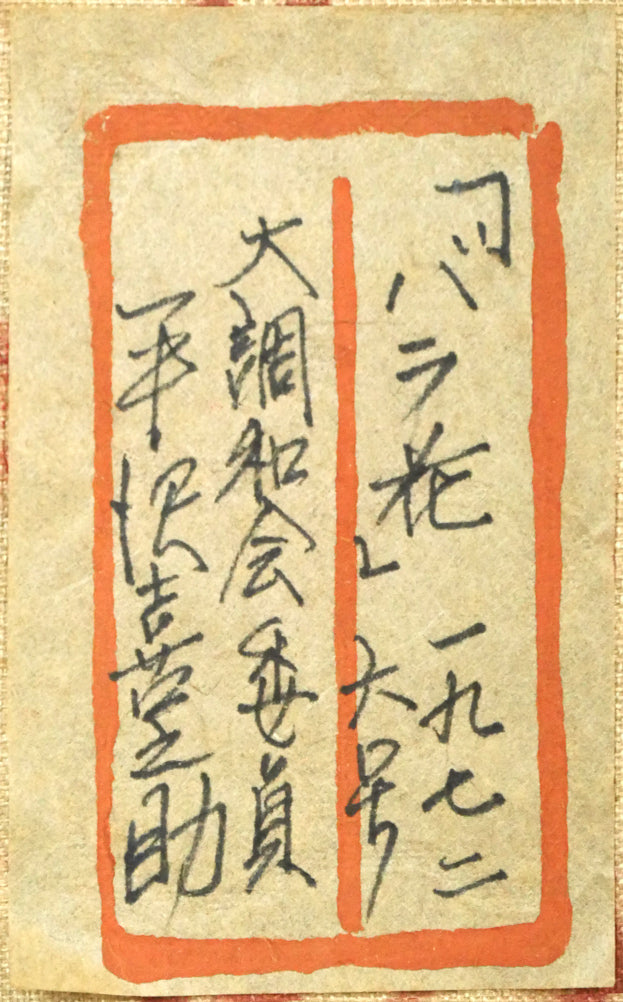 「バラ花」
一九七二
六号
大調和会委員
平沢喜之助